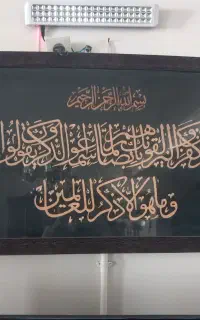 بسم الله الرحمن الرحيم
كفروا ليزلقونك بابصارهم لما سمعوا الذكر ويقولو
وما هو الا ذكر للعالمين